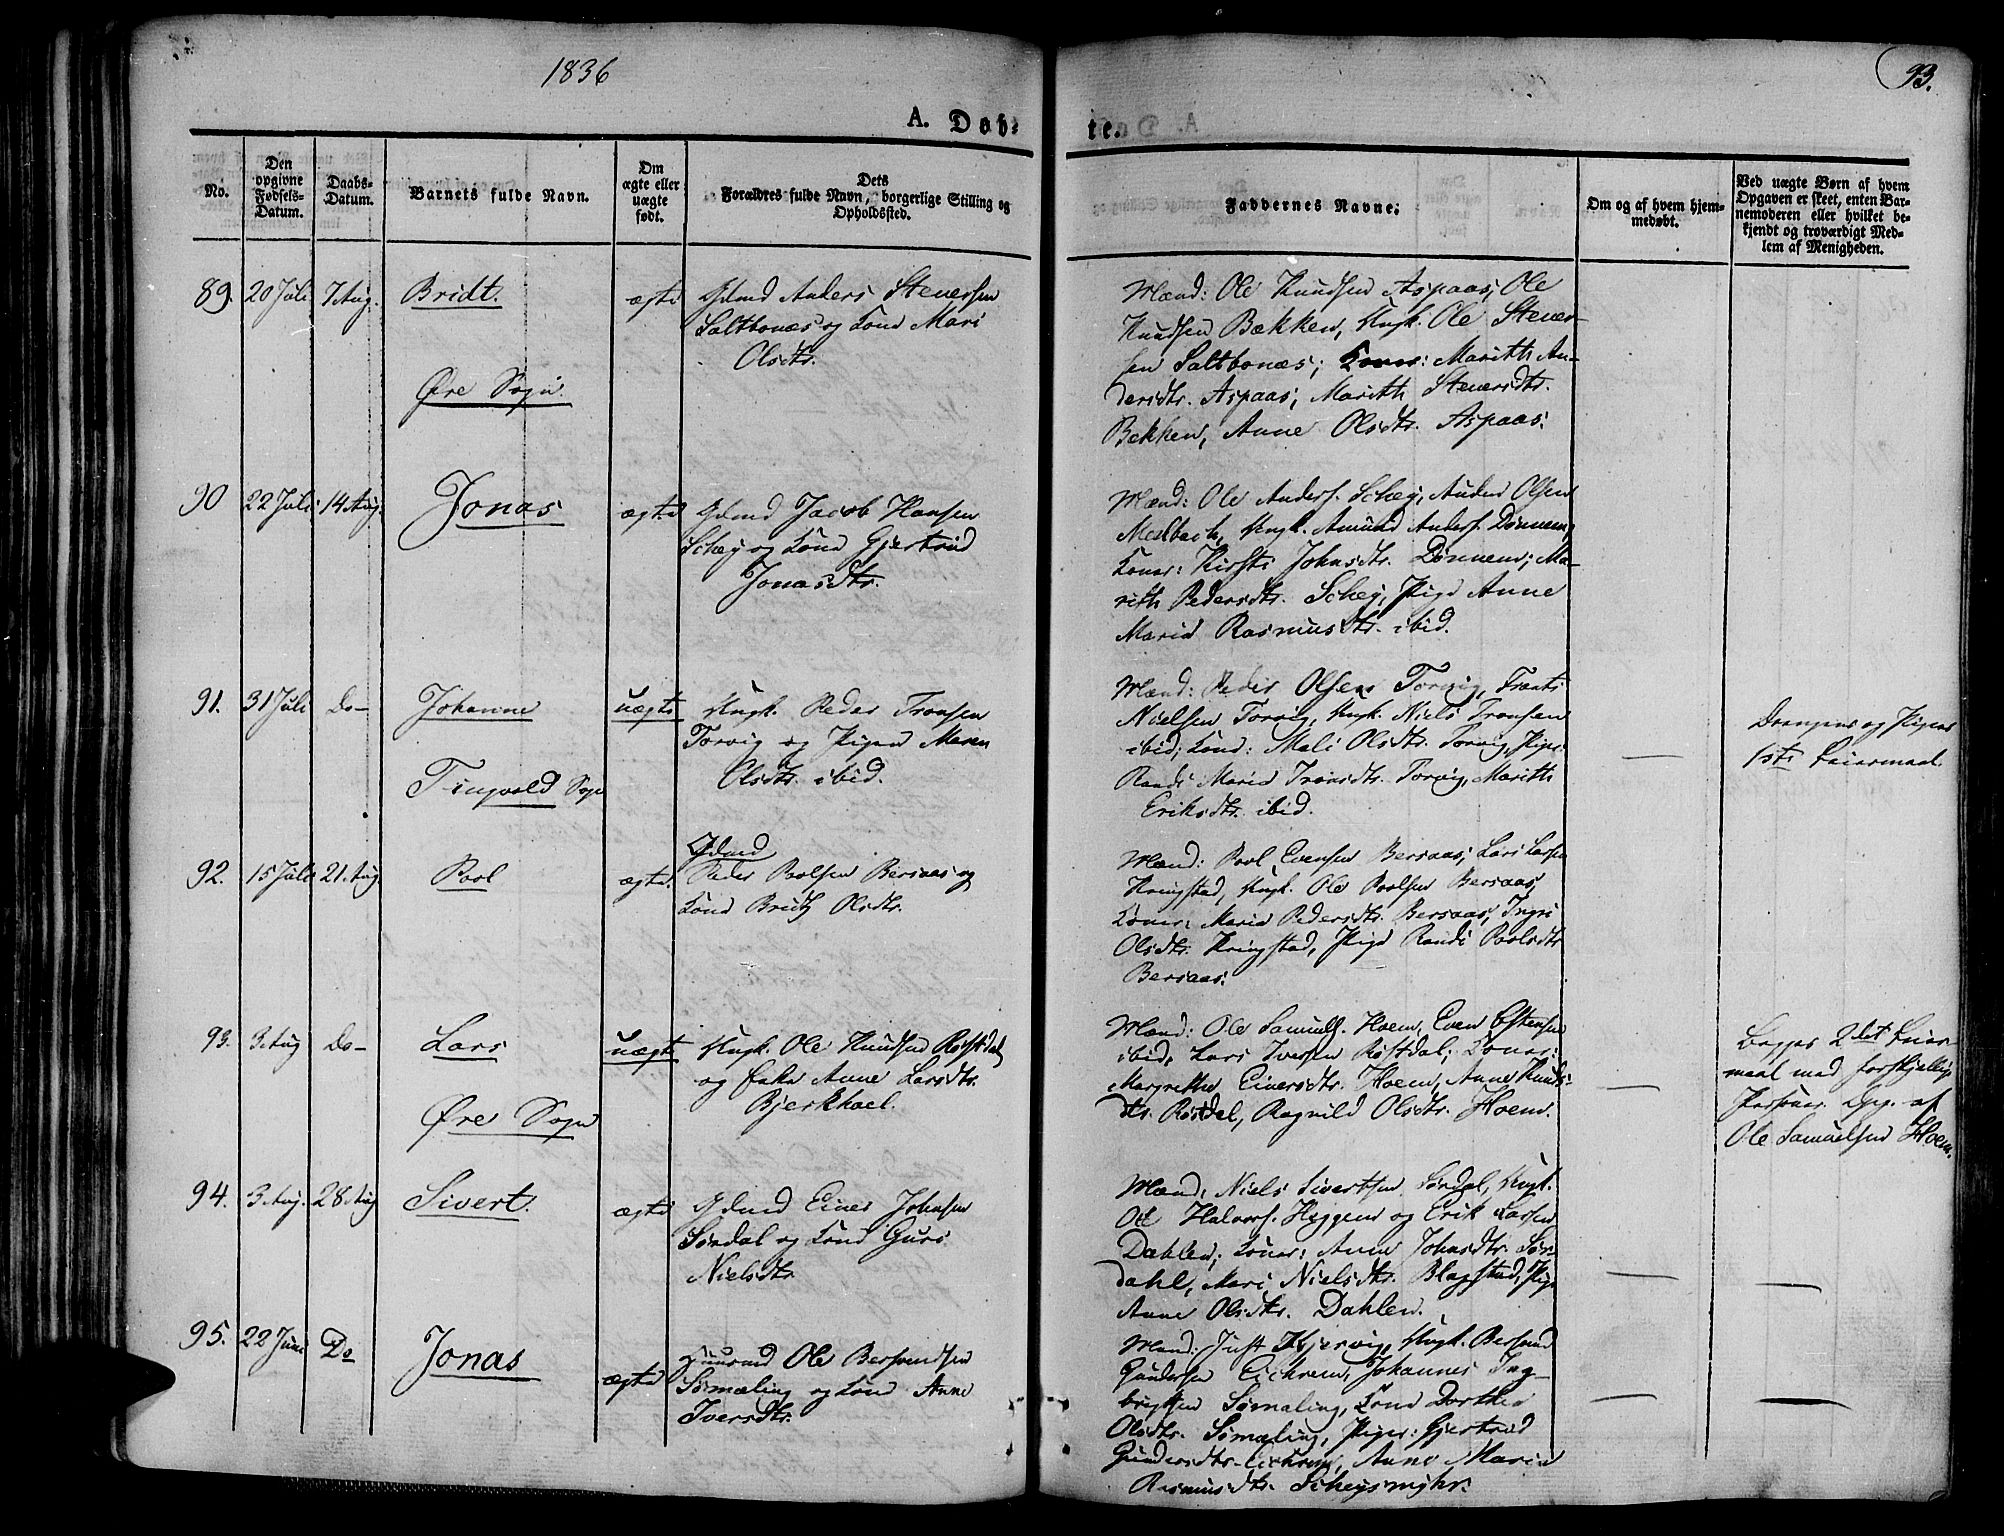 1836
93.
A. Døb-
te.
No.
Den
opgivne
Fødsels-
Datum.
Daabs-
Datum.
Barnets fulde Navn.
Om
ægte eller
uægte
født.
Dets
Forældres fulde Navn, borgerlige Stilling og
Opholdssted.
Faddernes Navne.
Om og af hvem hjem-
medøbt.
Ved uægte Børn af hvem
Opgaven er skeet, enten Bar-
nemoderen eller hvilket be-
kjendt og troværdigt Med-
lem af Menigheden.
89. 20 Juli 7 Aug. Bridt. ægte Gdmd Anders Stenersen
Saltbonæs og Kone Mari
Olsdtr.
Øre Sogn.
Mænd: Ole Knudsen Aspaas; Ole
Knudsen Bækken, Ungk. Ole Stener-
sen Saltbonæs; Koner: Marith An-
dersdtr. Aspaas; Marith Stenersdtr.
Bekken, Anne Olsdtr. Aspaas.
90 22 Juli 14 Aug. Jonas ægte Gdmd Jacob Hansen
Schey og Kone Gjertrud
Jonasdtr.
Mænd: Ole Anders. Schey, Olsen
Medbach, Ungk. Amund Anders. Dønnem;
Koner: Kirsti Johnsdtr. Dønnem; Ma-
rith Pedersdtr. Schey, Pige Anne
Marie Rasmusdtr. ibid.
91. 31 Juli Do- Johanne uægte Ungk. Peder Tronsen
Torvig og Pigen Maren
Olsdtr. ibid.
Tingvold Sogn
Mænd: Peder Olsen Torvig,
Nielsen Torvig, Ungk. Niels Tronsen
ibid; Kone: Mali Olsdtr. Torvig, Piger
Randi Marie Tronsdtr. Torvig, Marith
Eriksdtr. ibid.
Drengens og Pigens
1ste Leiermaal
92. 15 Juli 21 Aug. Povl ægte. Gdmd
Peder Povlsen Bersaas og
Kone Bridt Olsdtr.
Mænd: Povl Evensen Bersaas; Lars Larsen
Kringstad, Ungk. Ole Povlsen Bersaas;
Koner: Marie Pedersdtr. Bersaas, Ingri
Olsdtr. Kringstad, Pige Randi Povlsdtr
Bersaas.
93. 3 Aug Do- Lars uægte Ungk. Ole Knudsen Røstdal
og Enke Anne Larsdtr.
Bjerkhoel.
Øre Sogn
Mænd: Ole Samuels. Hoem, Even Estensen
ibid, Lars Iversen Røstdal; Koner:
Margrethe Einersdtr. Hoem, Anne Knuds-
dtr. Røstdal, Ragnild Olsdtr. Hoem.
Begges 2det Leier
maal med forskjellige
Personer. Opg. af
Ole Samuelsen Hoem.
94. 3 Aug. 28 Aug Sivert. ægte Gdmd Einer Johnsen
Sørdal og Kone Guro
Nielsdtr
Mænd: Niels Sivertsen Sørdal, Ungk.
Ole Halvors. Heggem og Erik Larsen
Dahlen; Koner: Anne Johnsdtr. Sør-
dahl, Mari Nielsdtr. Blagstad, Pige
Anne Olsdtr. Dahlen.
95. 22 Juni Do Jonas ægte Huusmd Ole Bersvendsen
Sømæling og Kone Anne
Iversdtr.
Mænd: Just Ungk. Bersvend
Gundersen Eichrem, Johannes Ing-
brigtsen Sømæling, Kone Dorthea
Olsdtr. Sømæling, Piger: Gjertrud
Gundersdtr. Eichrem, Anne Marie
Rasmusdtr. Scheysmyhr.